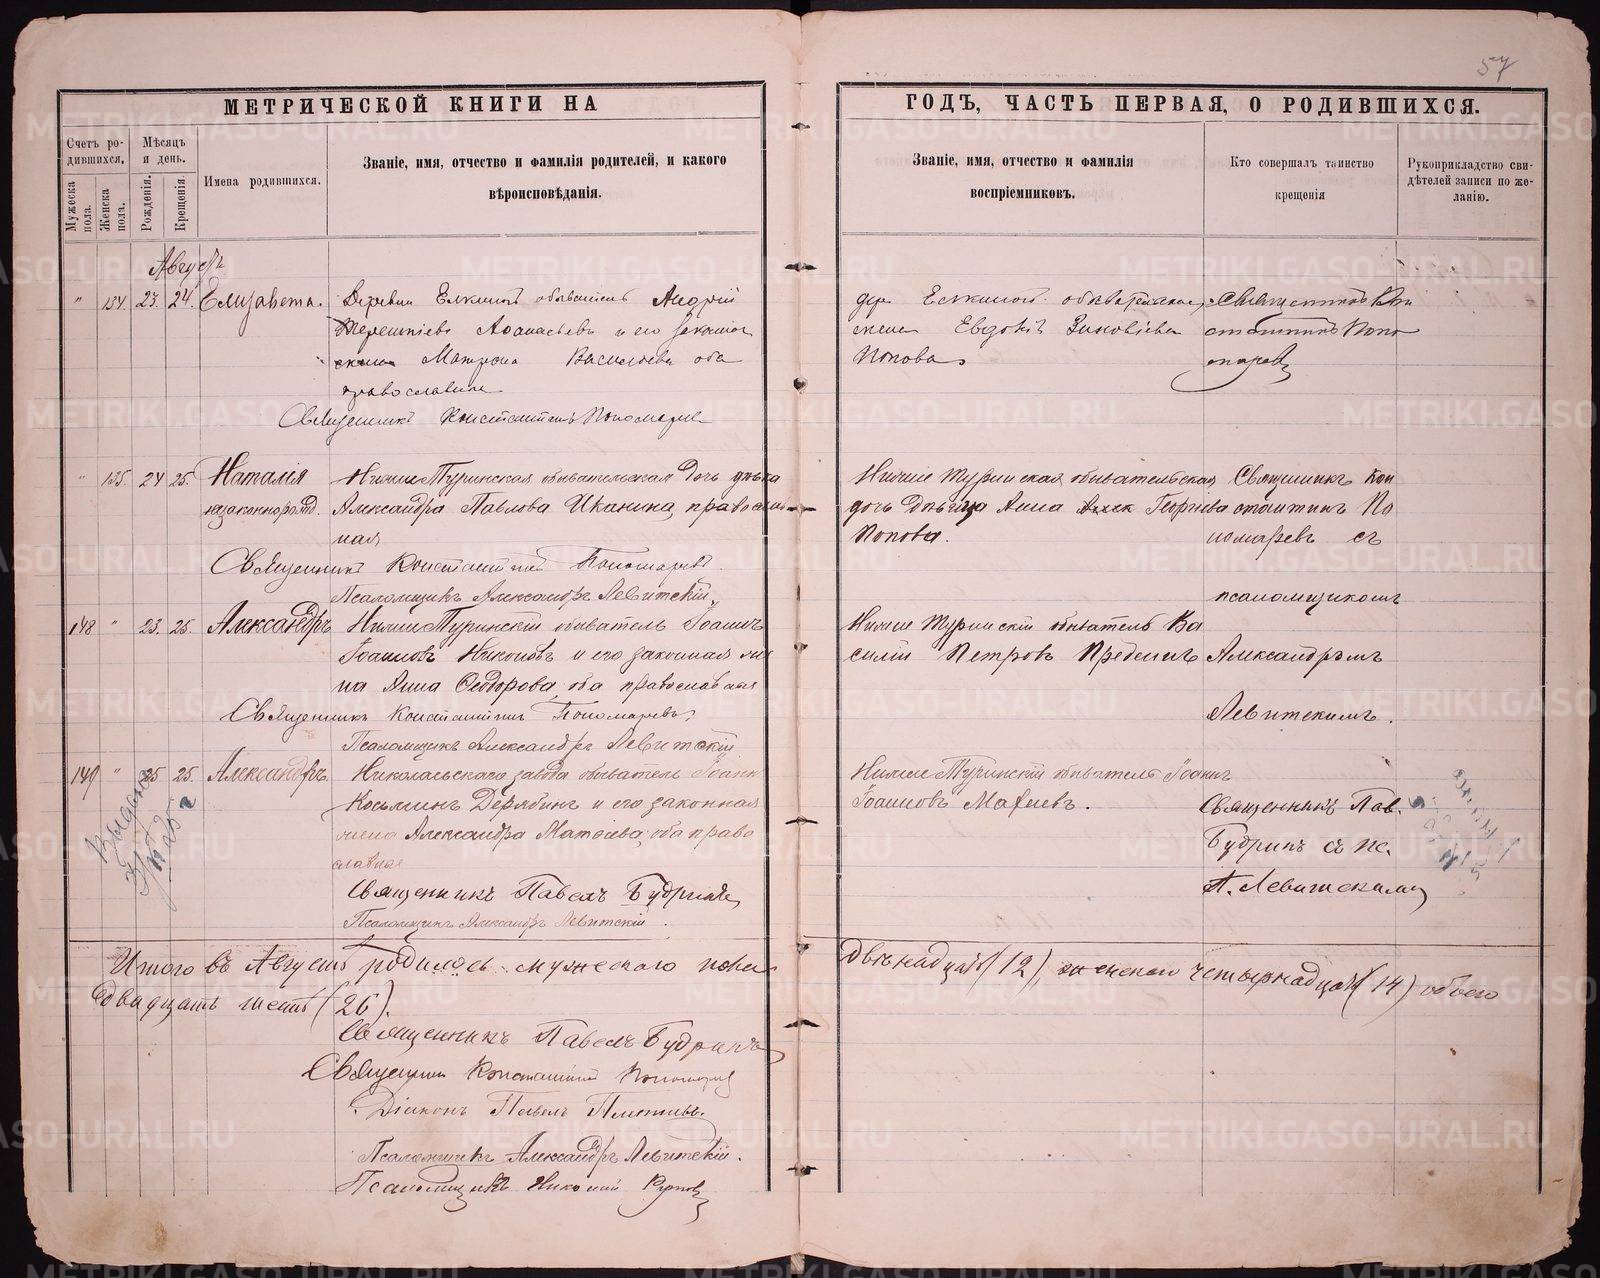 57
МЕТРИЧЕСКОЙ КНИГИ НА
ГОДЪ, ЧАСТЬ ПЕРВАЯ, О РОДИВШИХСЯ.
Счетъ родившихся.
Мужеска пола.
Женска пола.
Мѣсяцъ и день.
Рожденія.
Крещенія.
Имена родившихся.
Званіе, имя, отчество и фамилія родителей, и какого
вѣроисповѣданія.
Званіе, имя, отчество и фамилія
воспріемниковъ.
Кто совершалъ таинство
крещенія
Рукоприкладство сви-
дѣтелей записи по же-
ланію.
Августъ
" 134. 23. 24. Елизавета.
Деревни Елкиной обыватель Андрей
Терентіевъ Афанасьевъ и его законная
жена Матрона Васильева оба
православные
Священникъ Константинъ Пономаревъ
дер. Елкиной
жена Евдокія Зиновіева
Попова
Священникъ Кон
стантинъ Поно
маревъ
" 135. 24 25. Наталія
незаконнорожд.
Нижне Туринская обывательская дочь дѣвка
Александра Павлова Иканина, православ
ная
Священникъ Константинъ Пономаревъ.
Псаломщикъ Александръ Левитскій.
Нижне Туринская обывательская
дочь дѣвица Анна Георгіева
Попова.
Священникъ Кон
стантинъ По
номаревъ съ
псаломщикомъ
Александромъ
Левитскимъ.
148 " 23. 25. Александръ
Нижне Туринскій обыватель Іоаннъ
Іоанновъ Никоновъ и его законная же
на Анна Ѳеодорова, оба православная
Священникъ Константинъ Пономаревъ.
Псаломщикъ Александръ Левитскій
Нижне Туринскій обыватель Ва
силій Петровъ
149 " 25 25. Александръ
Николаевскаго завода обыватель Іоаннъ
Косьминъ Дерябинъ и его законная
жена Александра Матѳіева, оба право
славные
Священникъ Павелъ Будринъ
Псаломщикъ Александръ Левитскій.
Нижне Туринскій обыватель Іоаннъ
Іоанновъ
Священникъ Пав.
Будринъ съ пс.
А. Левитскимъ
Выдана
Итого въ Августѣ родилось мужескаго пола
двѣнадцать (12), женскаго четырнадцать (14) обоего
двадцать шесть (26).
Священникъ Павелъ Будринъ
Священникъ Константинъ Пономаревъ
Діаконъ Павелъ
Псаломщикъ Александръ Левитскій.
Псаломщикъ Николай
METRIKI.GASO-URAL.RU